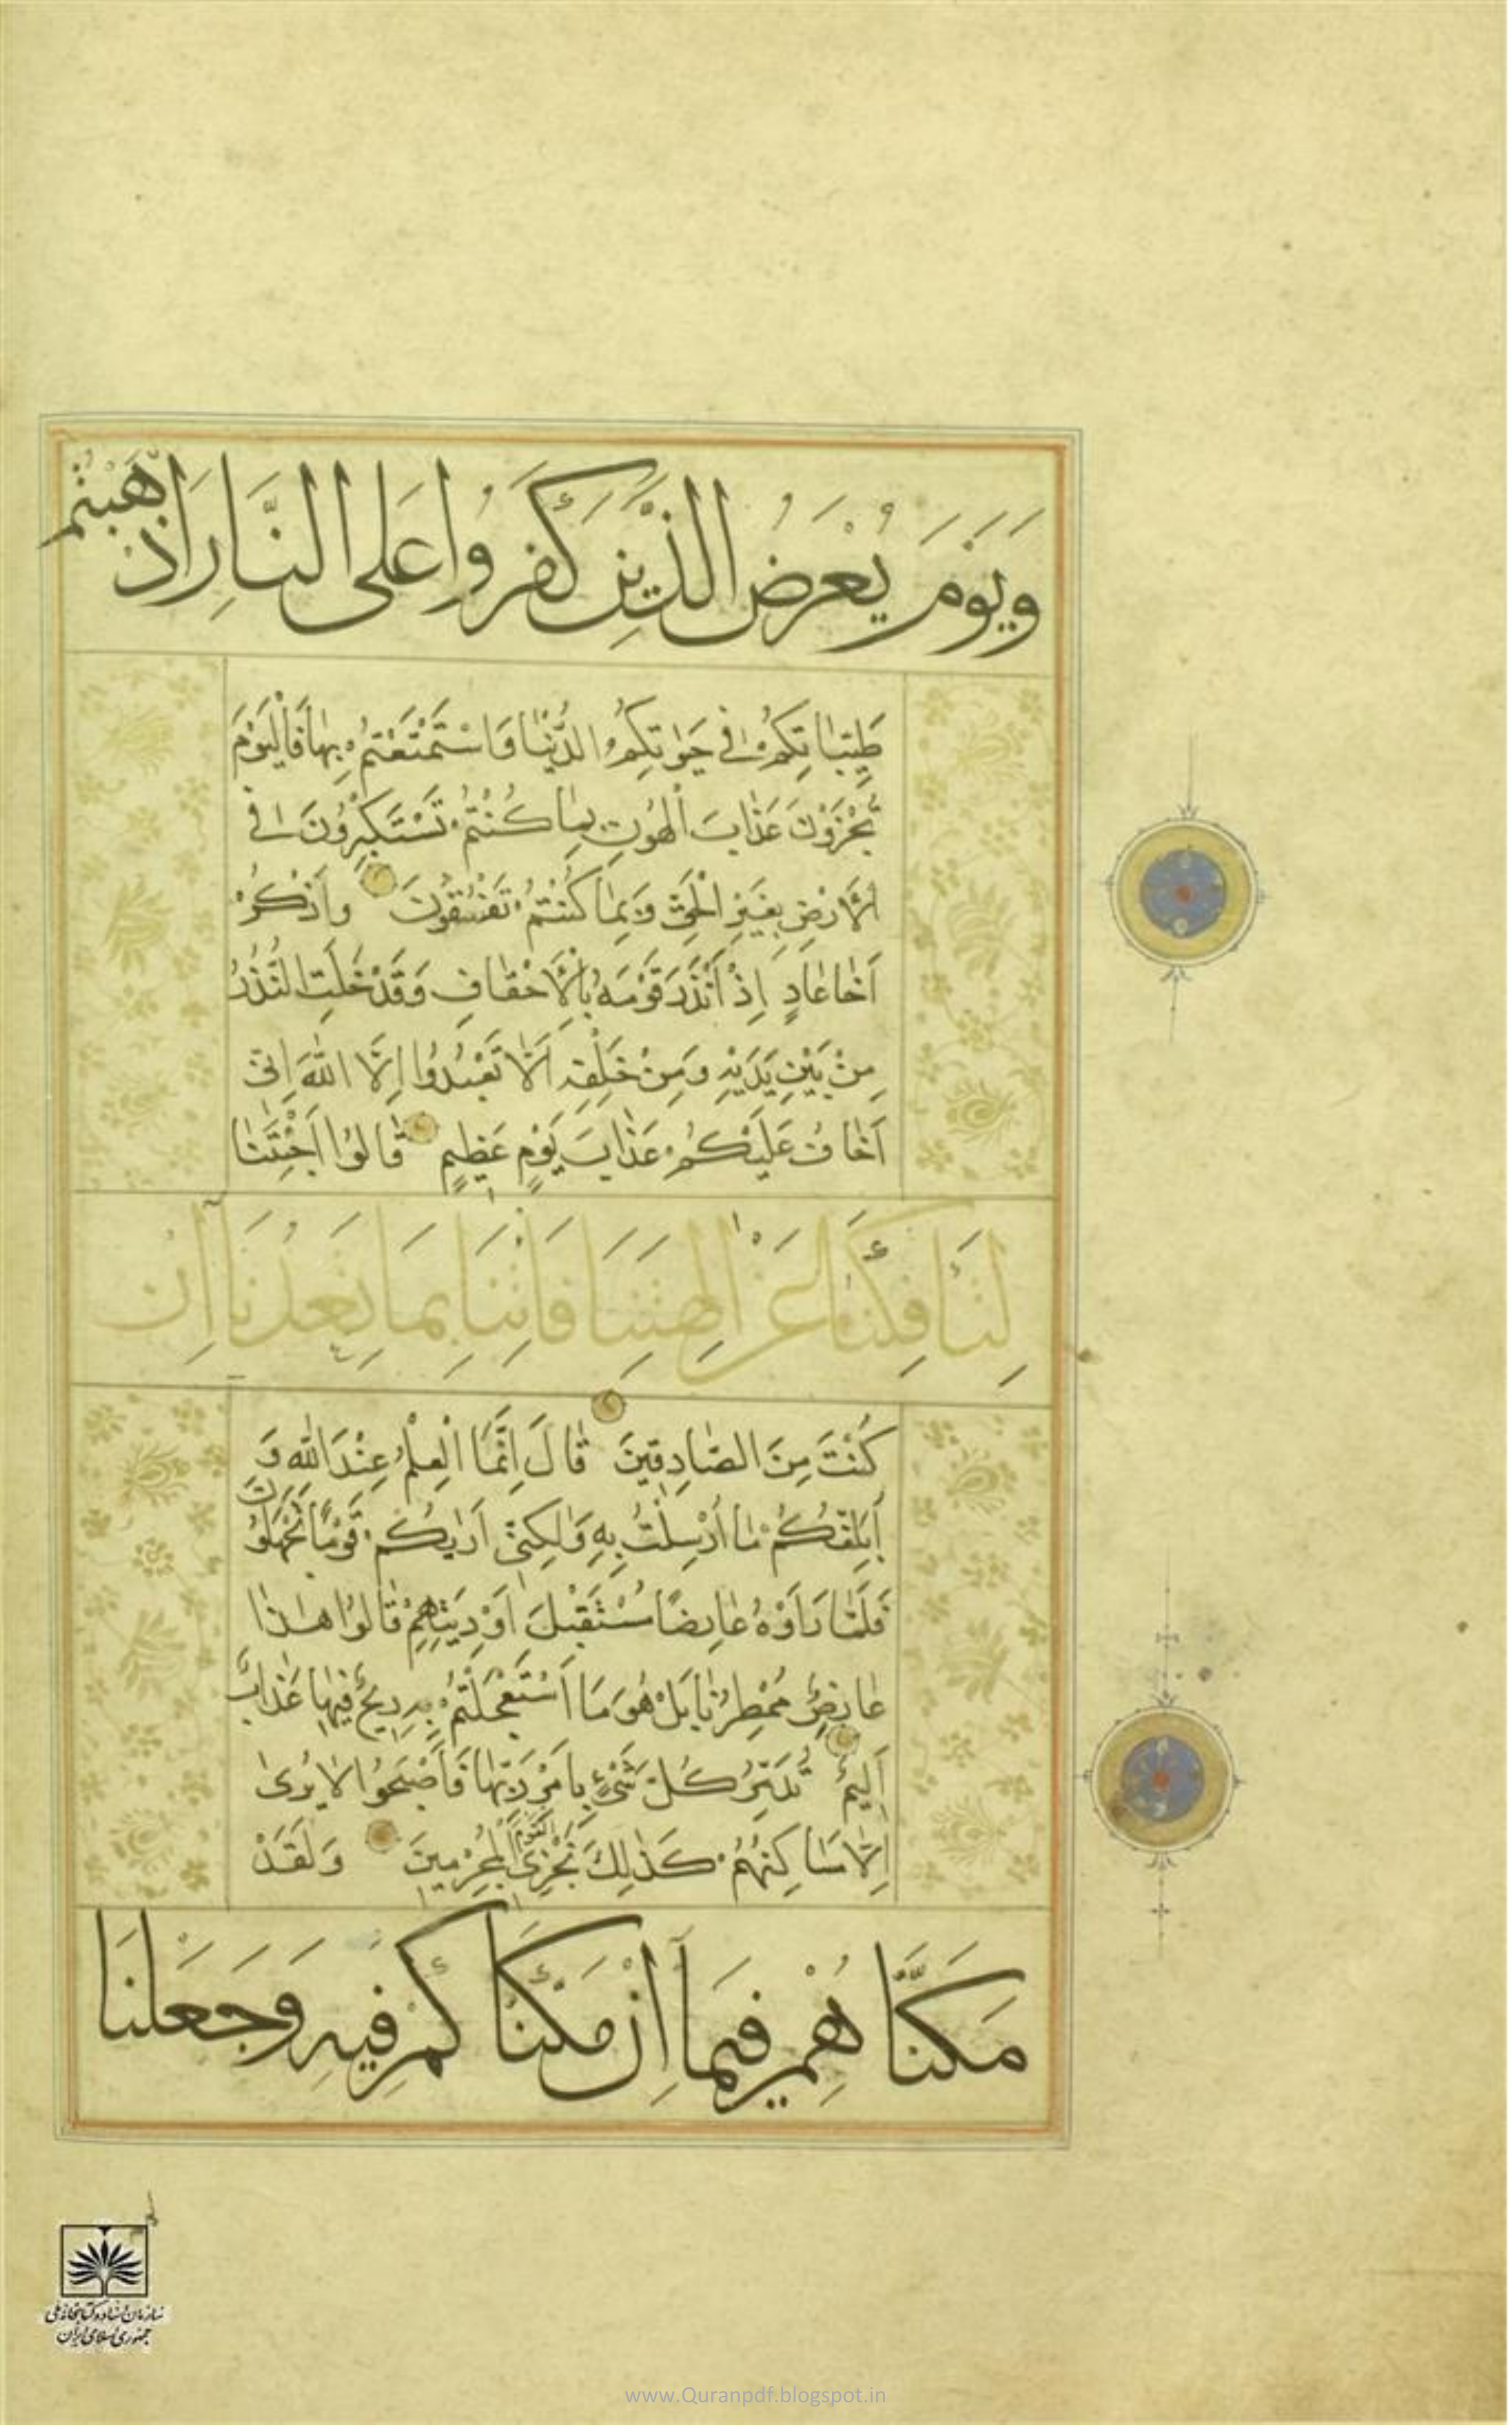 وَيَوْمَ يُعْرَضُ الَّذِينَ كَفَرُوا عَلَى النَّارِ اَذْهَبْتُمْ
طَيِّبَاتِكُمْ فِى حَيٰوتِكُمُ الدُّنْيَا وَاسْتَمْتَعْتُمْ بِهَا فَالْيَوْمَ
تُجْزَوْنَ عَذَابَ الْهُونِ بِمَا كُنْتُمْ تَسْتَكْبِرُونَ فِى
الْاَرْضِ بِغَيْرِ الْحَقِّ وَبِمَا كُنْتُمْ تَفْسُقُونَ وَاذْكُرْ
اَخَا عَادٍ اِذْ اَنْذَرَ قَوْمَهُ بِالْاَحْقَافِ وَقَدْ خَلَتِ النُّذُرُ
مِنْ بَيْنِ يَدَيْهِ وَمِنْ خَلْفِهِ اَلَّا تَعْبُدُوا اِلَّا اللّٰهَ اِنِّى
اَخَافُ عَلَيْكُمْ عَذَابَ يَوْمٍ عَظِيمٍ قَالُوا اَجِئْتَنَا
لِتَأْفِكَنَا عَنْ اٰلِهَتِنَا فَأْتِنَا بِمَا تَعِدُنَا اِنْ
كُنْتَ مِنَ الصَّادِقِينَ قَالَ اِنَّمَا الْعِلْمُ عِنْدَ اللّٰهِ وَ
اُبَلِّغُكُمْ مَا اُرْسِلْتُ بِهِ وَلٰكِنِّى اَرٰيكُمْ قَوْمًا تَجْهَلُونَ
فَلَمَّا رَاَوْهُ عَارِضًا مُسْتَقْبِلَ اَوْدِيَتِهِمْ قَالُوا هٰذَا
عَارِضٌ مُمْطِرُنَا بَلْ هُوَ مَا اسْتَعْجَلْتُمْ بِهِ رِيحٌ فِيهَا عَذَابٌ
اَلِيمٌ تُدَمِّرُ كُلَّ شَىْءٍ بِاَمْرِ رَبِّهَا فَاَصْبَحُوا لَا يُرٰى
اِلَّا مَسَاكِنُهُمْ كَذٰلِكَ نَجْزِى الْقَوْمَ الْمُجْرِمِينَ وَلَقَدْ
مَكَّنَّاهُمْ فِيمَا اِنْ مَكَّنَّاكُمْ فِيهِ وَجَعَلْنَا
لهم
سازمان اسناد و کتابخانه ملی
جمهوری اسلامی ایران
www.Quranpdf.blogspot.in